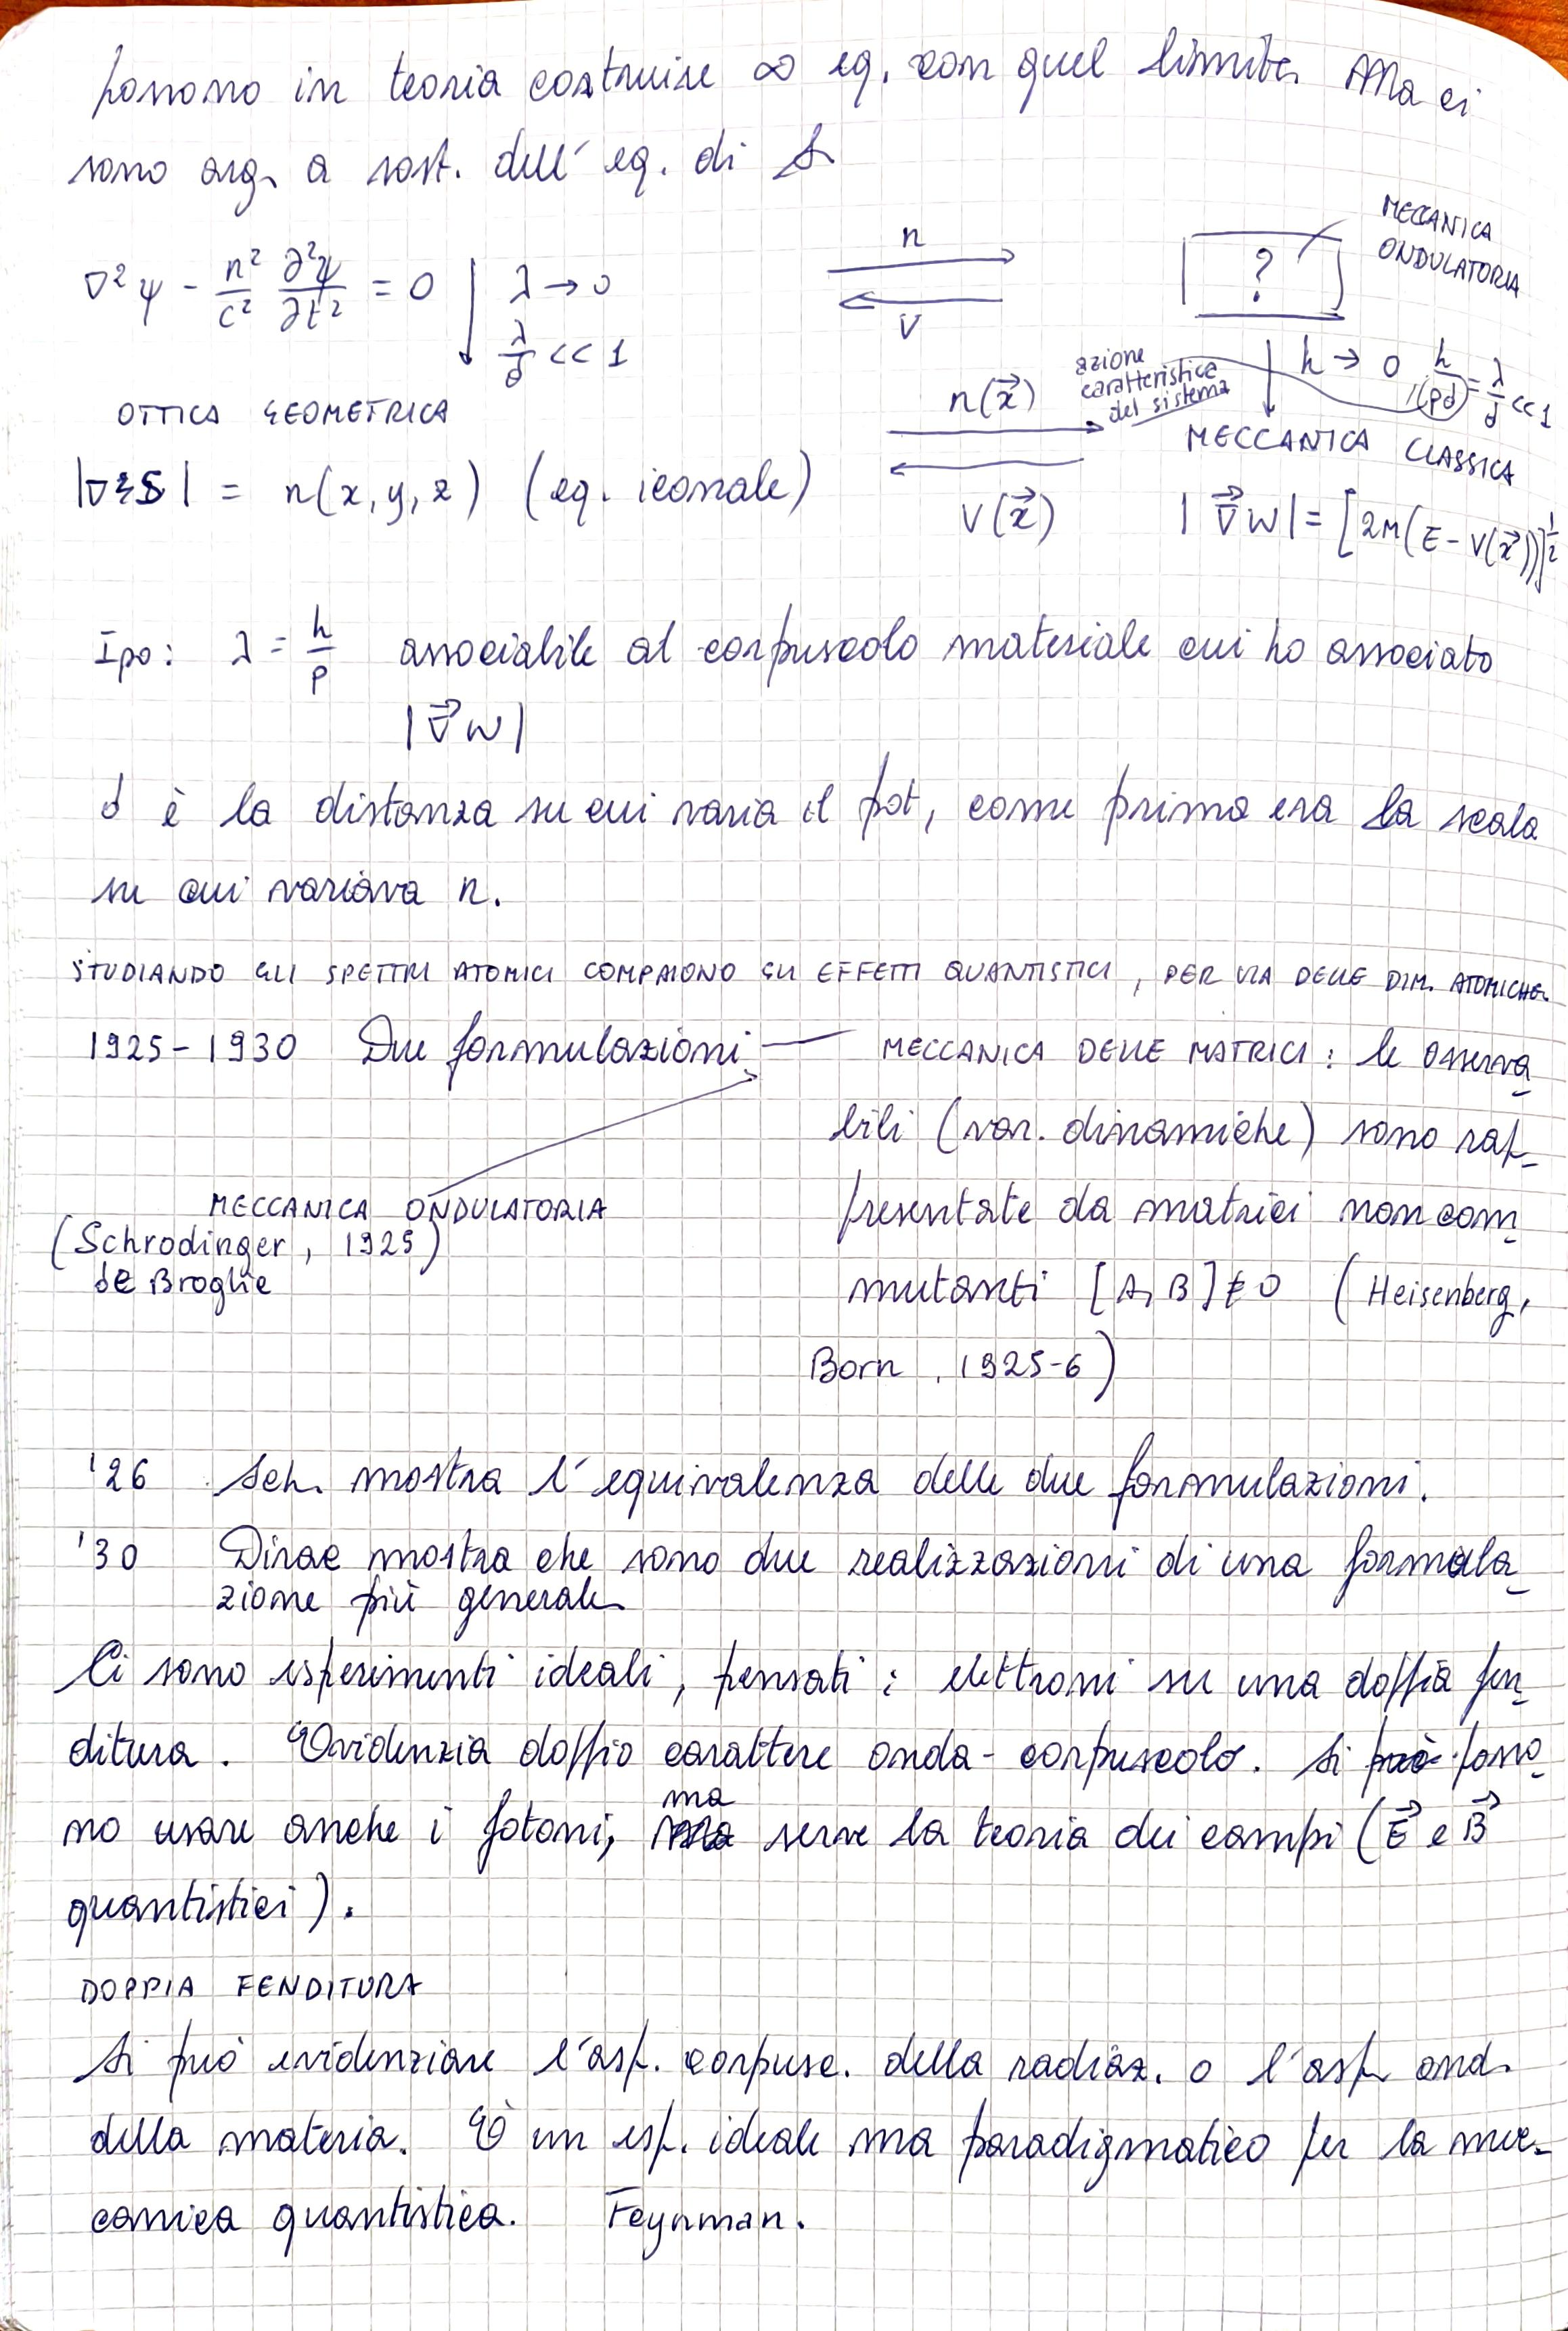 possono in teoria costruire ∞ eq. con quel limite. Ma ci
sono arg. a sost. dell' eq. di S.
∇²ψ - n²/c² ∂²ψ/∂t² = 0 | λ → 0
λ/d << 1
n
V
?
MECCANICA
ONDULATORIA
h → 0 h/(pd) = λ/d << 1
azione
caratteristica
del sistema
OTTICA GEOMETRICA
n(x⃗)
MECCANICA CLASSICA
|∇S| = n(x, y, z) (eq. iconale)
V(x⃗)
|∇⃗W| = [2M(E - V(x⃗))]^½
Ipo: λ = h/p associabile al corpuscolo materiale cui ho associato
|∇⃗W|
d è la distanza su cui varia il pot, come prima era la scala
su cui variava n.
STUDIANDO GLI SPETTRI ATOMICI COMPAIONO GLI EFFETTI QUANTISTICI, PER VIA DELLE DIM. ATOMICHE.
1925-1930 Due formulazioni — MECCANICA DELLE MATRICI: le osserva
bili (var. dinamiche) sono rap
presentate da matrici non com
mutanti [A, B] ≠ 0 (Heisenberg,
Born, 1925-6)
MECCANICA ONDULATORIA
(Schrodinger, 1925)
de Broglie
'26 Sch. mostra l'equivalenza delle due formulazioni.
'30 Dirac mostra che sono due realizzazioni di una formula
zione più generale.
Ci sono esperimenti ideali, pensati: elettroni su una doppia fen
ditura. Evidenzia doppio carattere onda-corpuscolo. Si può posso
no usare anche i fotoni, ma serve la teoria dei campi (E⃗ e B⃗
quantistici).
DOPPIA FENDITURA
Si può evidenziare l'asp. corpusc. della radiaz. o l'asp. ond.
della materia. È un esp. ideale ma paradigmatico per la mec-
canica quantistica. Feynman.